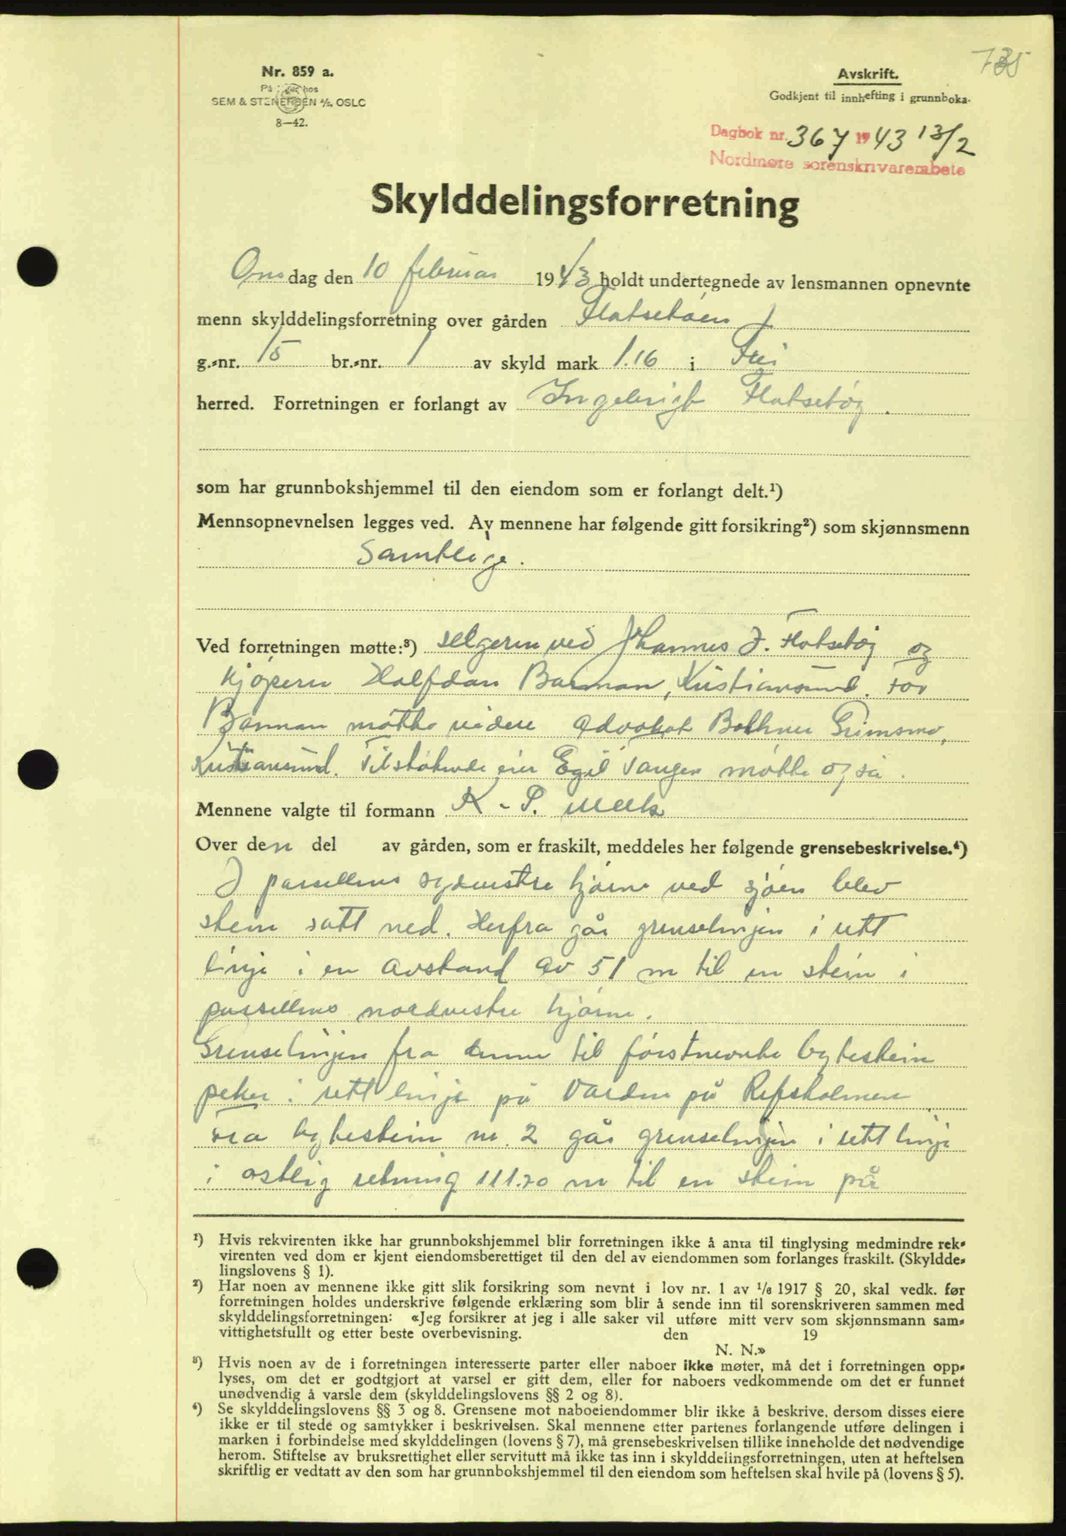 735
Nr. 859 a.
På lager hos
SEM & STENERSEN A/S, OSLO
8—42.
Avskrift.
Godkjent til innhefting i grunnboka.
Dagbok nr. 367 1943 13/2
Nordmøre sorenskrivarembete
Skylddelingsforretning
Onsdag den 10 februar 1943 holdt undertegnede av lensmannen opnevnte
menn skylddelingsforretning over gården Flatsetøen
g.-nr. 15 br.-nr. 1 av skyld mark 1.16 i Frei
herred. Forretningen er forlangt av Ingebrigt Flatsetøy.
som har grunnbokshjemmel til den eiendom som er forlangt delt.¹)
Mennsopnevnelsen legges ved. Av mennene har følgende gitt forsikring²) som skjønnsmenn
Samtlige.
Ved forretningen møtte:³) selgeren ved Johannes J. Flatsetøy og
kjøperen Halfdan Barman, Kristiansund. For
Barman møtte videre advokat Bothner Grimsmo,
Kristiansund. Tilstøtende eier Egil Tangen møtte også.
Mennene valgte til formann K. P.
Over den del av gården, som er fraskilt, meddeles her følgende grensebeskrivelse.⁴)
I parsellens sydvestre hjørne ved sjøen blev
stein satt ned. Herfra går grenselinjen i rett
linje i en avstand av 51 m til en stein i
parsellens nordvestre hjørne.
Grenselinjen fra denne til førstnevnte bytestein
peker i rett linje på Varden på Refsholmen
Fra bytestein nr. 2 går grenselinjen i rett linje
i østlig retning 111.70 m til en stein på
¹) Hvis rekvirenten ikke har grunnbokshjemmel blir forretningen ikke å anta til tinglysing medmindre rek-
virenten ved dom er kjent eiendomsberettiget til den del av eiendommen som forlanges fraskilt. (Skyldde-
lingslovens § 1).
²) Har noen av mennene ikke gitt slik forsikring som nevnt i lov nr. 1 av 1/6 1917 § 20, skal vedk. før
forretningen holdes underskrive følgende erklæring som blir å sende inn til sorenskriveren sammen med
skylddelingsforretningen: «Jeg forsikrer at jeg i alle saker vil utføre mitt verv som skjønnsmann sam-
vittighetsfullt og etter beste overbevisning. den 19
N. N.»
³) Hvis noen av de i forretningen interesserte parter eller naboer ikke møter, må det i forretningen opp-
lyses, om det er godtgjort at varsel er gitt dem, eller for naboers vedkommende om det er funnet
unødvendig å varsle dem (skylddelingslovens §§ 2 og 8).
⁴) Se skylddelingslovens §§ 3 og 8. Grensene mot naboeiendommer blir ikke å beskrive, dersom disses eiere
ikke er til stede og samtykker i beskrivelsen. Skal mennene etter partenes forlangende utføre delingen i
marken i forbindelse med skylddelingen (lovens § 7), må grensebeskrivelsen tillike inneholde det nødvendige
herom. Stiftelse av bruksrettighet eller servitutt må ikke tas inn i skylddelingsforretningen, uten at heftelsen
skriftlig er vedtatt av den som har grunnbokshjemmel til den eiendom som heftelsen skal hvile på (lovens § 5).